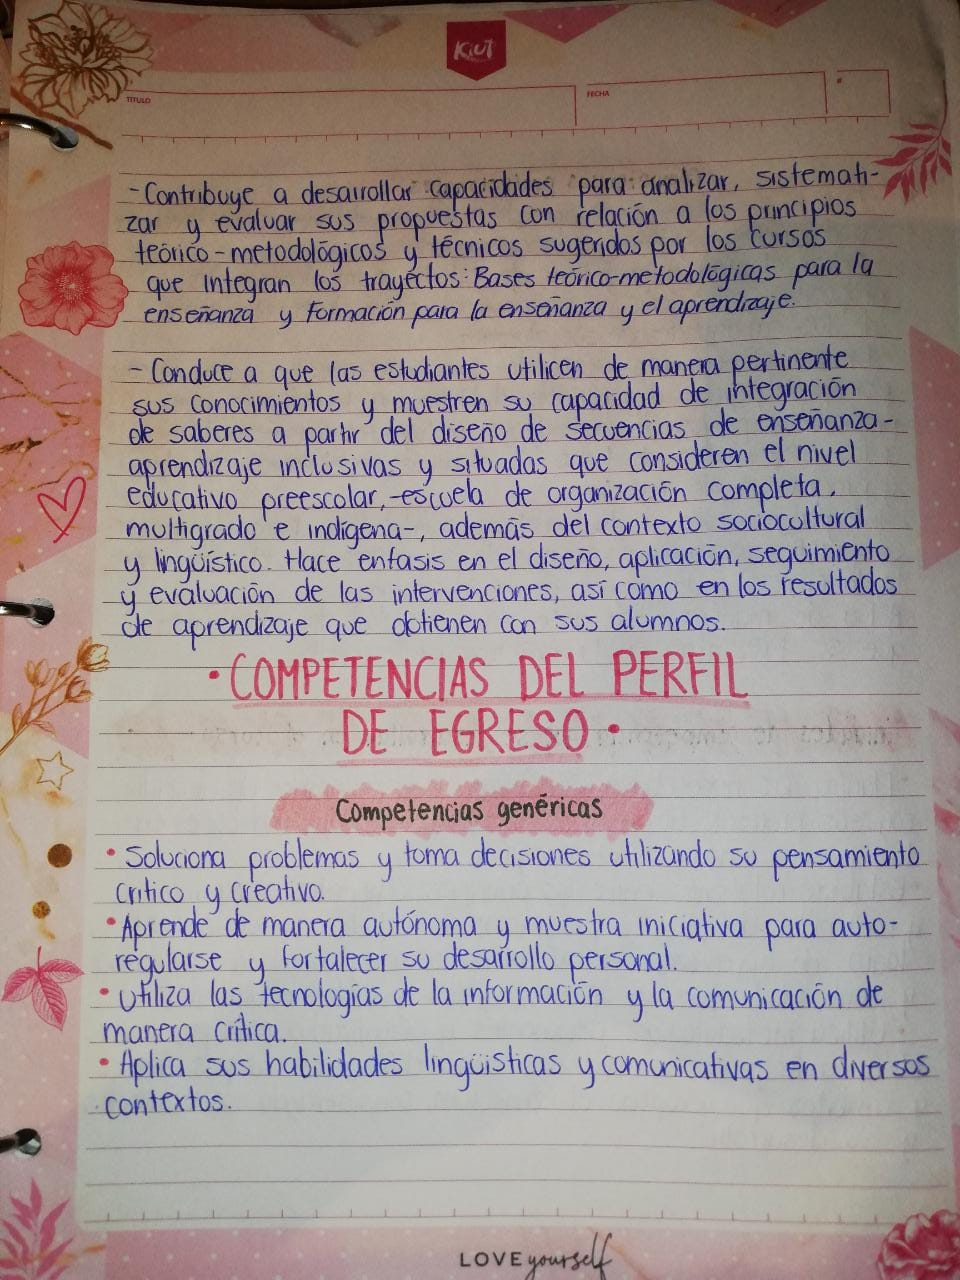 KIUT
TITULO
FECHA
#
-Contribuye a desarrollar capacidades para analizar, sistemati-
zar y evaluar sus propuestas con relación a los principios
teórico-metodológicos y técnicos sugeridos por los cursos
que integran los trayectos: Bases teórico-metodológicas para la
enseñanza y Formación para la enseñanza y el aprendizaje.
- Conduce a que las estudiantes utilicen de manera pertinente
sus conocimientos y muestren su capacidad de integración
de saberes a partir del diseño de secuencias de enseñanza-
aprendizaje inclusivas y situadas que consideren el nivel
educativo preescolar, -escuela de organización completa,
multigrado e indígena-, además del contexto sociocultural
y lingüístico. Hace enfasis en el diseño, aplicación, seguimiento
y evaluación de las intervenciones, así como en los resultados
de aprendizaje que obtienen con sus alumnos.
• COMPETENCIAS DEL PERFIL
DE EGRESO •
Competencias genéricas
• Soluciona problemas y toma decisiones utilizando su pensamiento
critico y creativo.
• Aprende de manera autónoma y muestra iniciativa para auto-
regularse y fortalecer su desarrollo personal.
• Utiliza las tecnologías de la información y la comunicación de
manera crítica.
• Aplica sus habilidades lingüísticas y comunicativas en diversos
contextos.
LOVE yourself